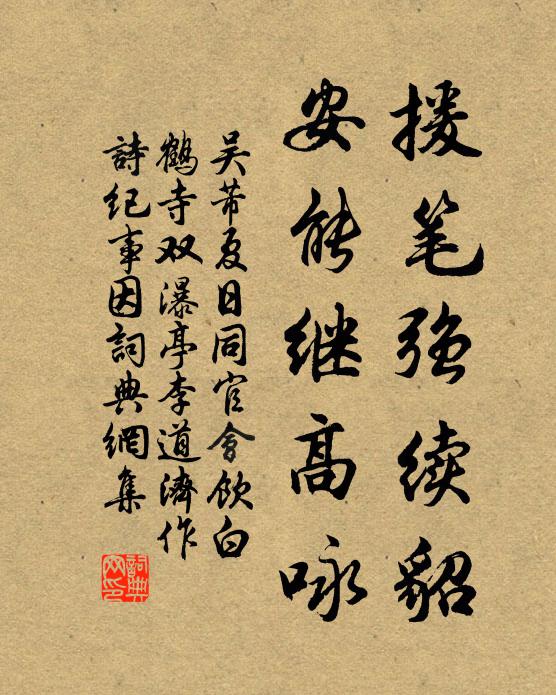 援笔强续貂
安能继高咏
吴芾夏日同官会饮白
鹤寺双瀑亭李道濟作
詩纪事因詞典網集
詞典网印